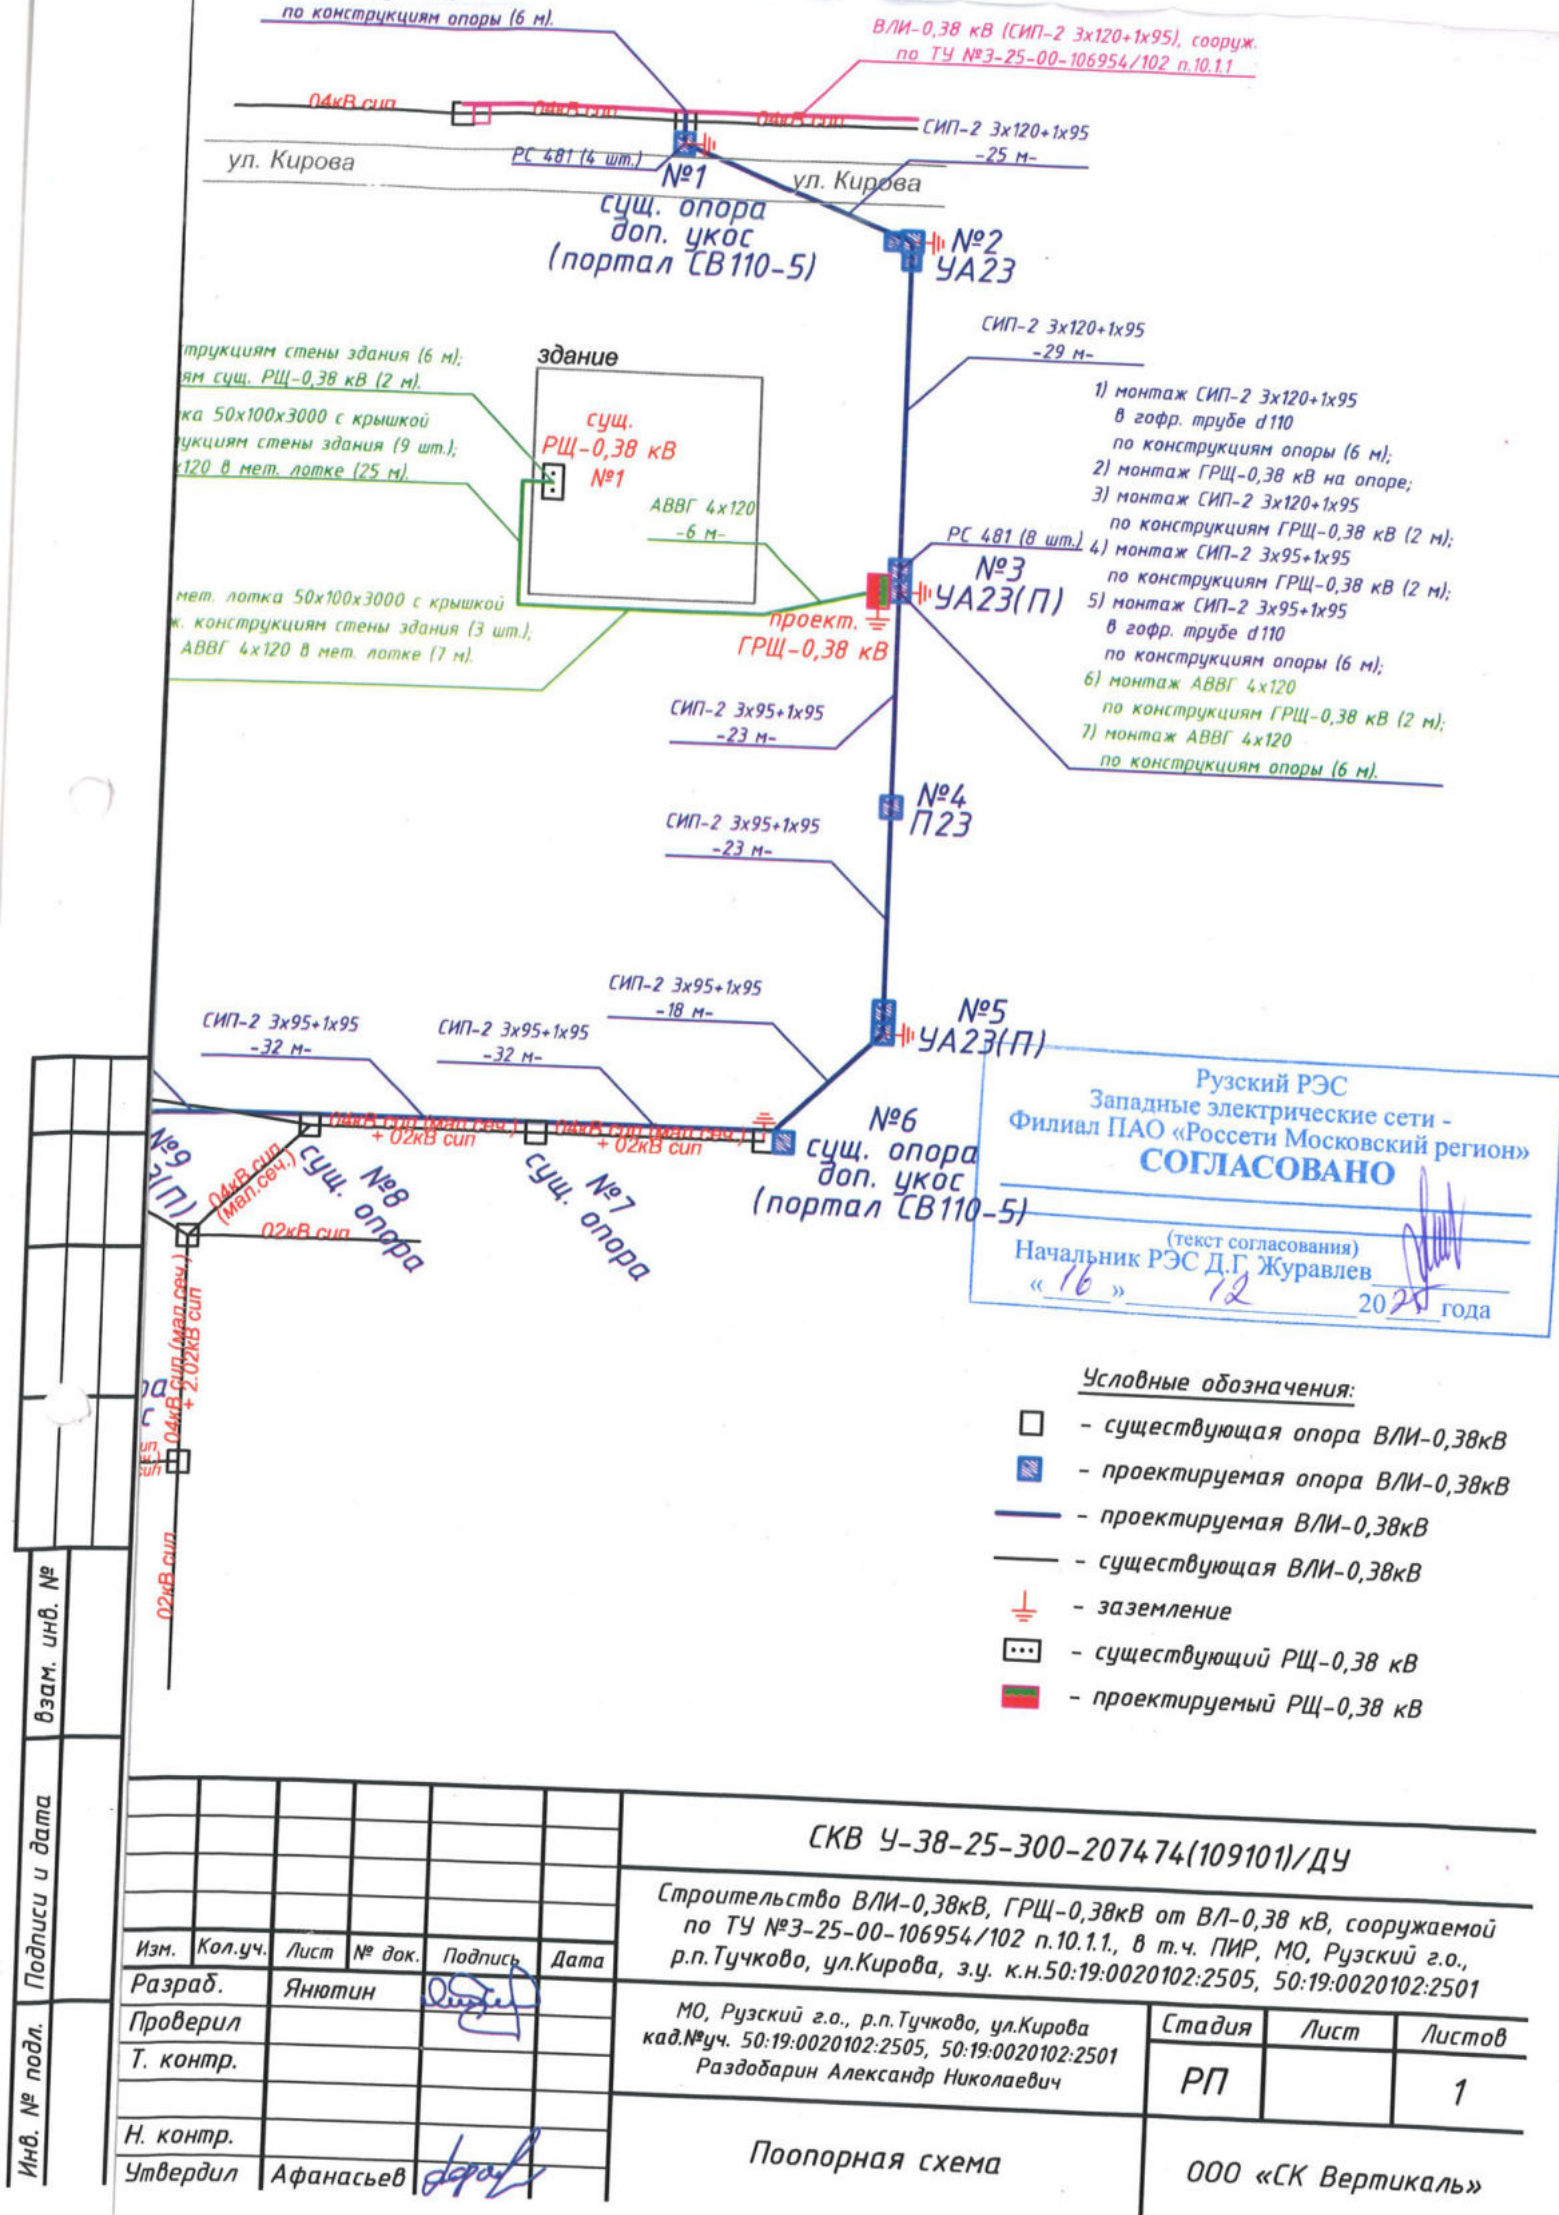 по конструкциям опоры (6 м).
ВЛИ-0,38 кВ (СИП-2 3х120+1х95), сооруж.
по ТУ №З-25-00-106954/102 п.10.1.1
04кВ сип
04кВ сип
04кВ сип
СИП-2 3х120+1х95
-25 м-
ул. Кирова
РС 481 (4 шт.)
ул. Кирова
№1
сущ. опора
доп. укос
(портал СВ110-5)
№2
УА23
СИП-2 3х120+1х95
-29 м-
трукциям стены здания (6 м);
ям сущ. РЩ-0,38 кВ (2 м).
ка 50х100х3000 с крышкой
укциям стены здания (9 шт.);
х120 в мет. лотке (25 м).
здание
сущ.
РЩ-0,38 кВ
№1
АВВГ 4х120
-6 м-
1) монтаж СИП-2 3х120+1х95
в гофр. трубе d110
по конструкциям опоры (6 м);
2) монтаж ГРЩ-0,38 кВ на опоре;
3) монтаж СИП-2 3х120+1х95
по конструкциям ГРЩ-0,38 кВ (2 м);
4) монтаж СИП-2 3х95+1х95
по конструкциям ГРЩ-0,38 кВ (2 м);
5) монтаж СИП-2 3х95+1х95
в гофр. трубе d110
по конструкциям опоры (6 м);
6) монтаж АВВГ 4х120
по конструкциям ГРЩ-0,38 кВ (2 м);
7) монтаж АВВГ 4х120
по конструкциям опоры (6 м).
РС 481 (8 шт.)
№3
УА23(П)
проект.
ГРЩ-0,38 кВ
мет. лотка 50х100х3000 с крышкой
ж. конструкциям стены здания (3 шт.);
АВВГ 4х120 в мет. лотке (7 м).
СИП-2 3х95+1х95
-23 м-
№4
П23
СИП-2 3х95+1х95
-23 м-
СИП-2 3х95+1х95
-18 м-
№5
УА23(П)
СИП-2 3х95+1х95
-32 м-
СИП-2 3х95+1х95
-32 м-
04кВ сип (мал.сеч.)
+ 02кВ сип
04кВ сип (мал.сеч.)
+ 02кВ сип
№6
сущ. опора
доп. укос
(портал СВ110-5)
№7
сущ. опора
№8
сущ. опора
№9
(П)
04кВ сип
(мал.сеч.)
02кВ сип
04кВ сип (мал.сеч.)
+ 2.02кВ сип
ра
с
ип
сип
02кВ сип
Рузский РЭС
Западные электрические сети -
Филиал ПАО «Россети Московский регион»
СОГЛАСОВАНО
(текст согласования)
Начальник РЭС Д.Г. Журавлев
«16» 12 2025 года
Условные обозначения:
- существующая опора ВЛИ-0,38кВ
- проектируемая опора ВЛИ-0,38кВ
- проектируемая ВЛИ-0,38кВ
- существующая ВЛИ-0,38кВ
- заземление
- существующий РЩ-0,38 кВ
- проектируемый РЩ-0,38 кВ
Взам. инв. №
Подписи и дата
Инв. № подл.
СКВ У-38-25-300-207474(109101)/ДУ
Строительство ВЛИ-0,38кВ, ГРЩ-0,38кВ от ВЛ-0,38 кВ, сооружаемой
по ТУ №З-25-00-106954/102 п.10.1.1., в т.ч. ПИР, МО, Рузский г.о.,
р.п.Тучково, ул.Кирова, з.у. к.н.50:19:0020102:2505, 50:19:0020102:2501
Изм. Кол.уч. Лист № док. Подпись Дата
Разраб. Янютин
Проверил
Т. контр.
Н. контр.
Утвердил Афанасьев
МО, Рузский г.о., р.п.Тучково, ул.Кирова
кад.№уч. 50:19:0020102:2505, 50:19:0020102:2501
Раздобарин Александр Николаевич
Стадия Лист Листов
РП 1
Поопорная схема
ООО «СК Вертикаль»